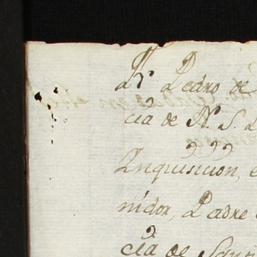 Fr. Pedro de
cia de N. S.
Inquisicion, e
nidor, Padre
cia de San